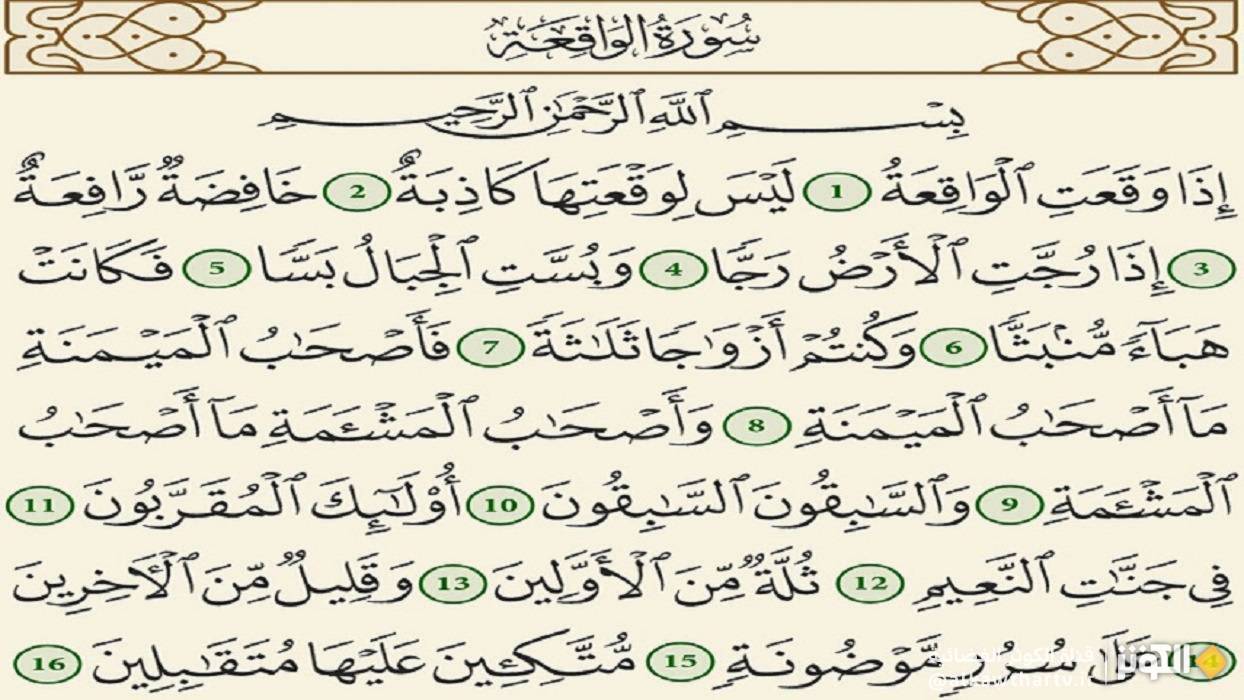 سُورَةُ الوَاقِعَةِ
بِسْمِ ٱللَّهِ ٱلرَّحْمَٰنِ ٱلرَّحِيمِ
إِذَا وَقَعَتِ ٱلْوَاقِعَةُ 1 لَيْسَ لِوَقْعَتِهَا كَاذِبَةٌ 2 خَافِضَةٌ رَّافِعَةٌ
3 إِذَا رُجَّتِ ٱلْأَرْضُ رَجًّا 4 وَبُسَّتِ ٱلْجِبَالُ بَسًّا 5 فَكَانَتْ
هَبَآءً مُّنۢبَثًّا 6 وَكُنتُمْ أَزْوَٰجًا ثَلَٰثَةً 7 فَأَصْحَٰبُ ٱلْمَيْمَنَةِ
مَآ أَصْحَٰبُ ٱلْمَيْمَنَةِ 8 وَأَصْحَٰبُ ٱلْمَشْـَٔمَةِ مَآ أَصْحَٰبُ
ٱلْمَشْـَٔمَةِ 9 وَٱلسَّٰبِقُونَ ٱلسَّٰبِقُونَ 10 أُو۟لَٰٓئِكَ ٱلْمُقَرَّبُونَ 11
فِى جَنَّٰتِ ٱلنَّعِيمِ 12 ثُلَّةٌ مِّنَ ٱلْأَوَّلِينَ 13 وَقَلِيلٌ مِّنَ ٱلْـَٔاخِرِينَ
14 مَّوْضُونَةٍ 15 مُّتَّكِـِٔينَ عَلَيْهَا مُتَقَٰبِلِينَ 16
الكوثر قناة الكوثر الفضائية
@alkawthartv.ir